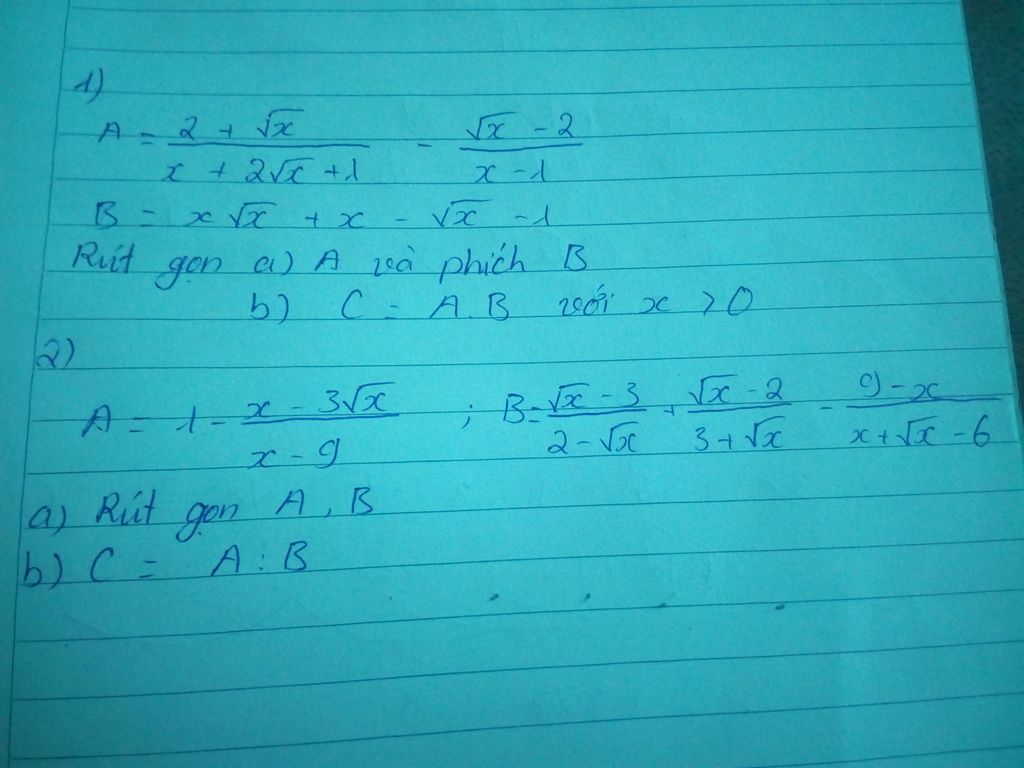 1)
A = (2 + √x)/(x + 2√x + 1) - (√x - 2)/(x - 1)
B = x√x + x - √x - 1
Rút gọn a) A và phích B
b) C = A.B với x > 0
2)
A = 1 - (x - 3√x)/(x - 9) ; B = (√x - 3)/(2 - √x) + (√x - 2)/(3 + √x) - (9 - x)/(x + √x - 6)
a) Rút gọn A, B
b) C = A : B